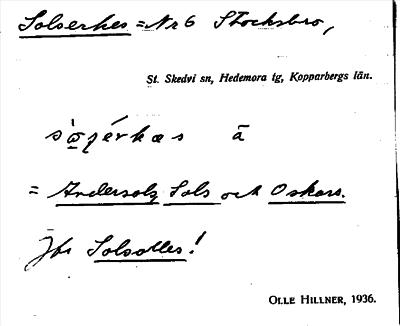 Solserkes = Nr 6 Stocksbro,
St. Skedvi sn, Hedemora tg, Kopparbergs län.
ā
= Andersols Sols och Oskars.
Jfr Solsolles!
OLLE HILLNER, 1936.